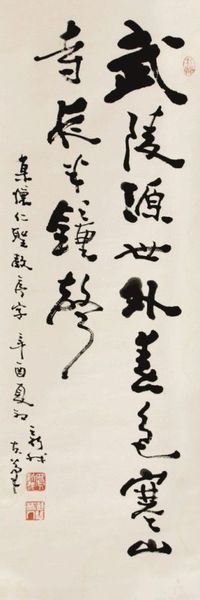 武陵源世外春色寒山
寺夜半鐘聲
集懷仁聖教序字 辛酉夏初